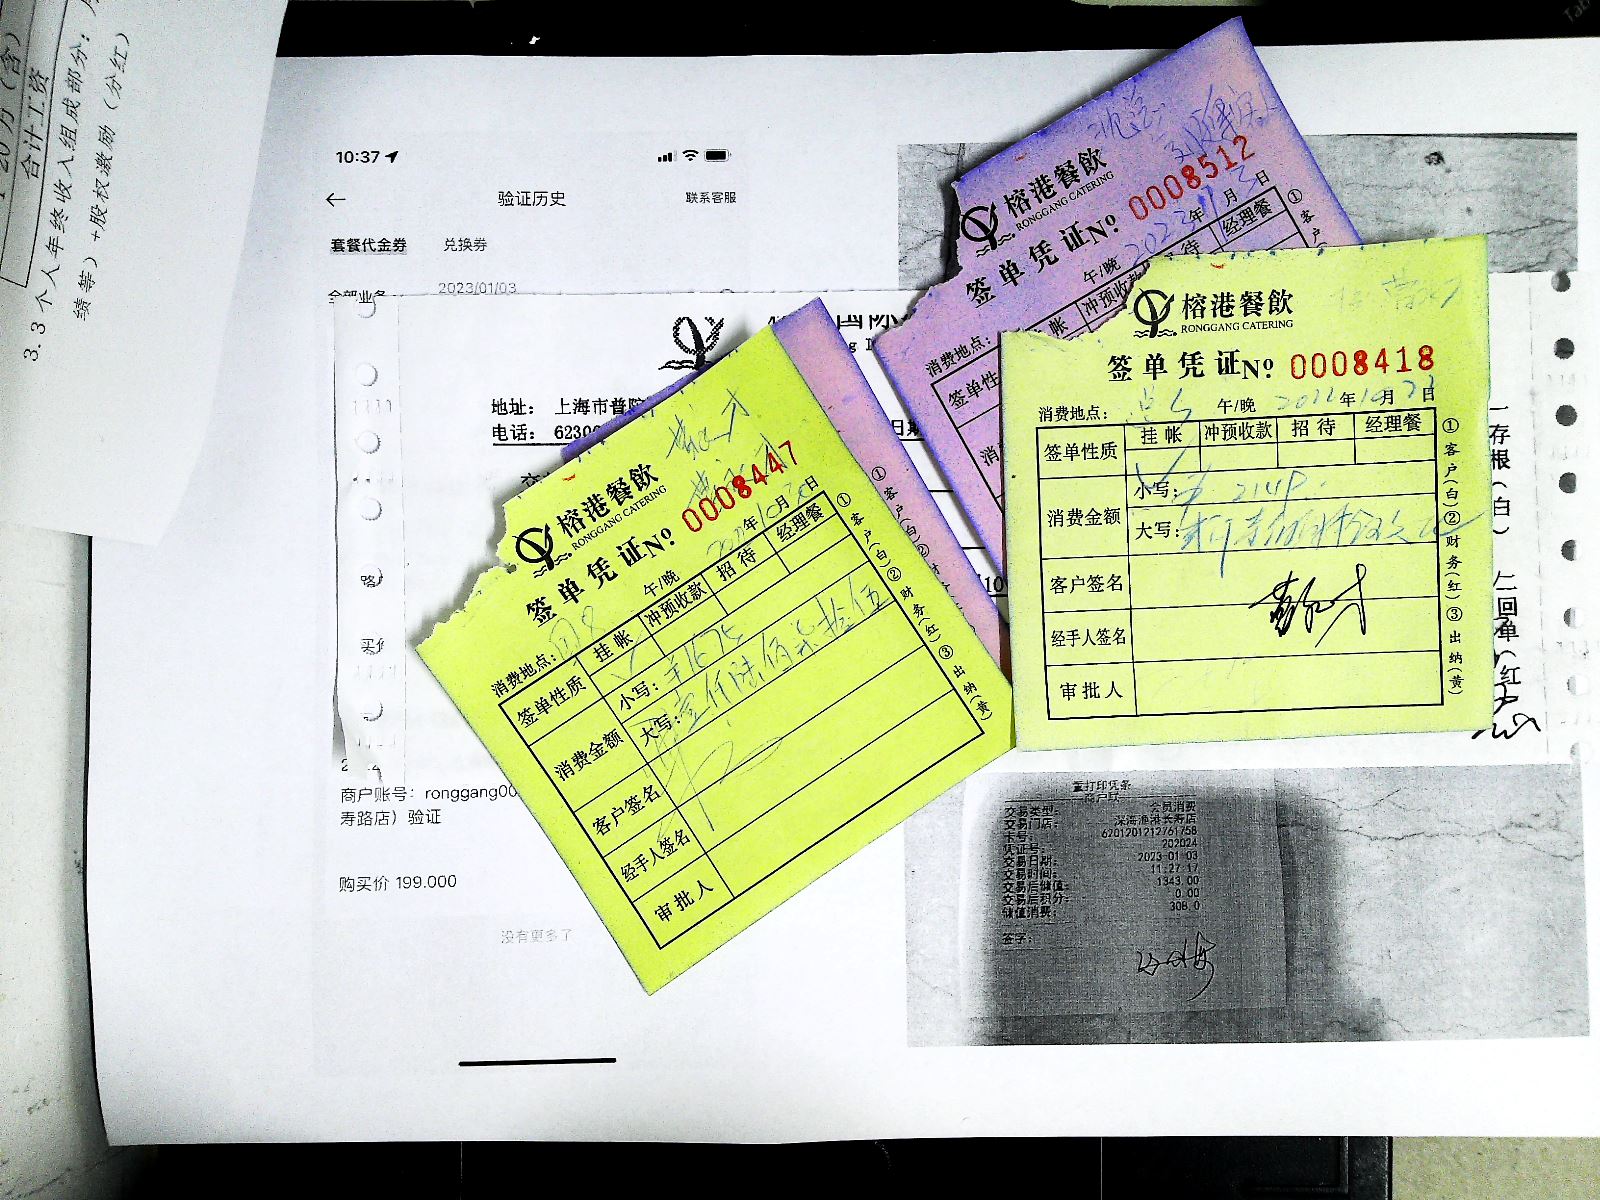 20万（含）
合计工资
3.3 个人年终收入组成部分：
绩等）+股权激励（分红）
10:37
验证历史
联系客服
套餐代金券
兑换券
全部业务
2023/01/03
地址： 上海市普陀
电话： 6230
商户账号：ronggang00
寿路店）验证
购买价 199.000
没有更多了
榕港餐飲
RONGGANG CATERING
签单凭证№ 0008512
午/晚 2022年11月 日
消费地点：
挂帐 冲预收款 招待 经理餐
签单性
①客户(
榕港餐飲
RONGGANG CATERING
签单凭证№ 0008418
消费地点： 午/晚 2022年10月 日
签单性质 挂帐 冲预收款 招待 经理餐
消费金额 小写： 2148
大写：
客户签名
经手人签名
审批人
①客户(白)②财务(红)③出纳(黄)
榕港餐飲
RONGGANG CATERING
签单凭证№ 0008447
消费地点： 午/晚 2022年10月30日
签单性质 挂帐 冲预收款 招待 经理餐
消费金额 小写： 1675
大写： 壹仟陆佰柒拾伍
客户签名
经手人签名
审批人
①客户(白)②财务(红)③出纳(黄)
①客户(白)②财务(红)
一存根(白)
二回单(红)
重打印凭条
商户联
交易类型： 会员消费
交易门店： 深海渔港长寿店
卡号： 6201201212761758
凭证号： 202024
交易日期： 2023-01-03
交易时间： 11:27:17
交易后储值： 1343.00
交易后积分： 0.00
储值消费： 308.0
签字：